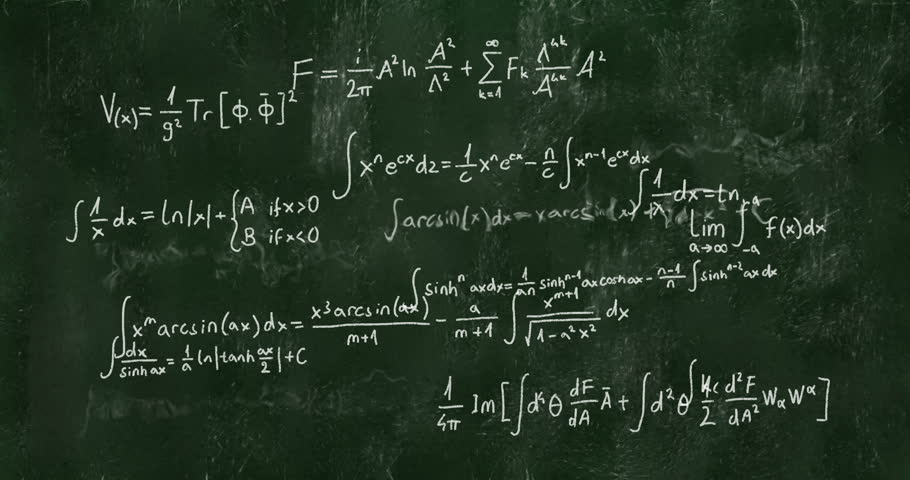 F = i/2π A² ln A²/Λ² + ∑_{k=1}^{∞} F_k Λ^{4k}/A^{4k} A²
V(x) = 1/g² Tr [ϕ.ϕ̄]²
∫ xⁿ e^{cx} dz = 1/c xⁿ e^{cx} - n/c ∫ x^{n-1} e^{cx} dx
∫ 1/x dx = ln
∫ 1/x dx = ln|x| + { A if x>0
B if x<0
∫ arcsin(x) dx = x arcsin(x) +
lim_{a→∞} ∫_{-a}^{a} f(x) dx
∫ sinhⁿ ax dx = 1/an sinh^{n-1} ax cosh ax - n-1/n ∫ sinh^{n-2} ax dx
∫ x^m arcsin(ax) dx = x³ arcsin(ax)/m+1 - a/m+1 ∫ x^{m+1}/√(1-a²x²) dx
∫ dx/sinh ax = 1/a ln|tanh ax/2| + C
1/4π Im [∫ d⁴θ dF/dA Ā + ∫ d²θ 1/2 d²F/dA² W_α W^α]